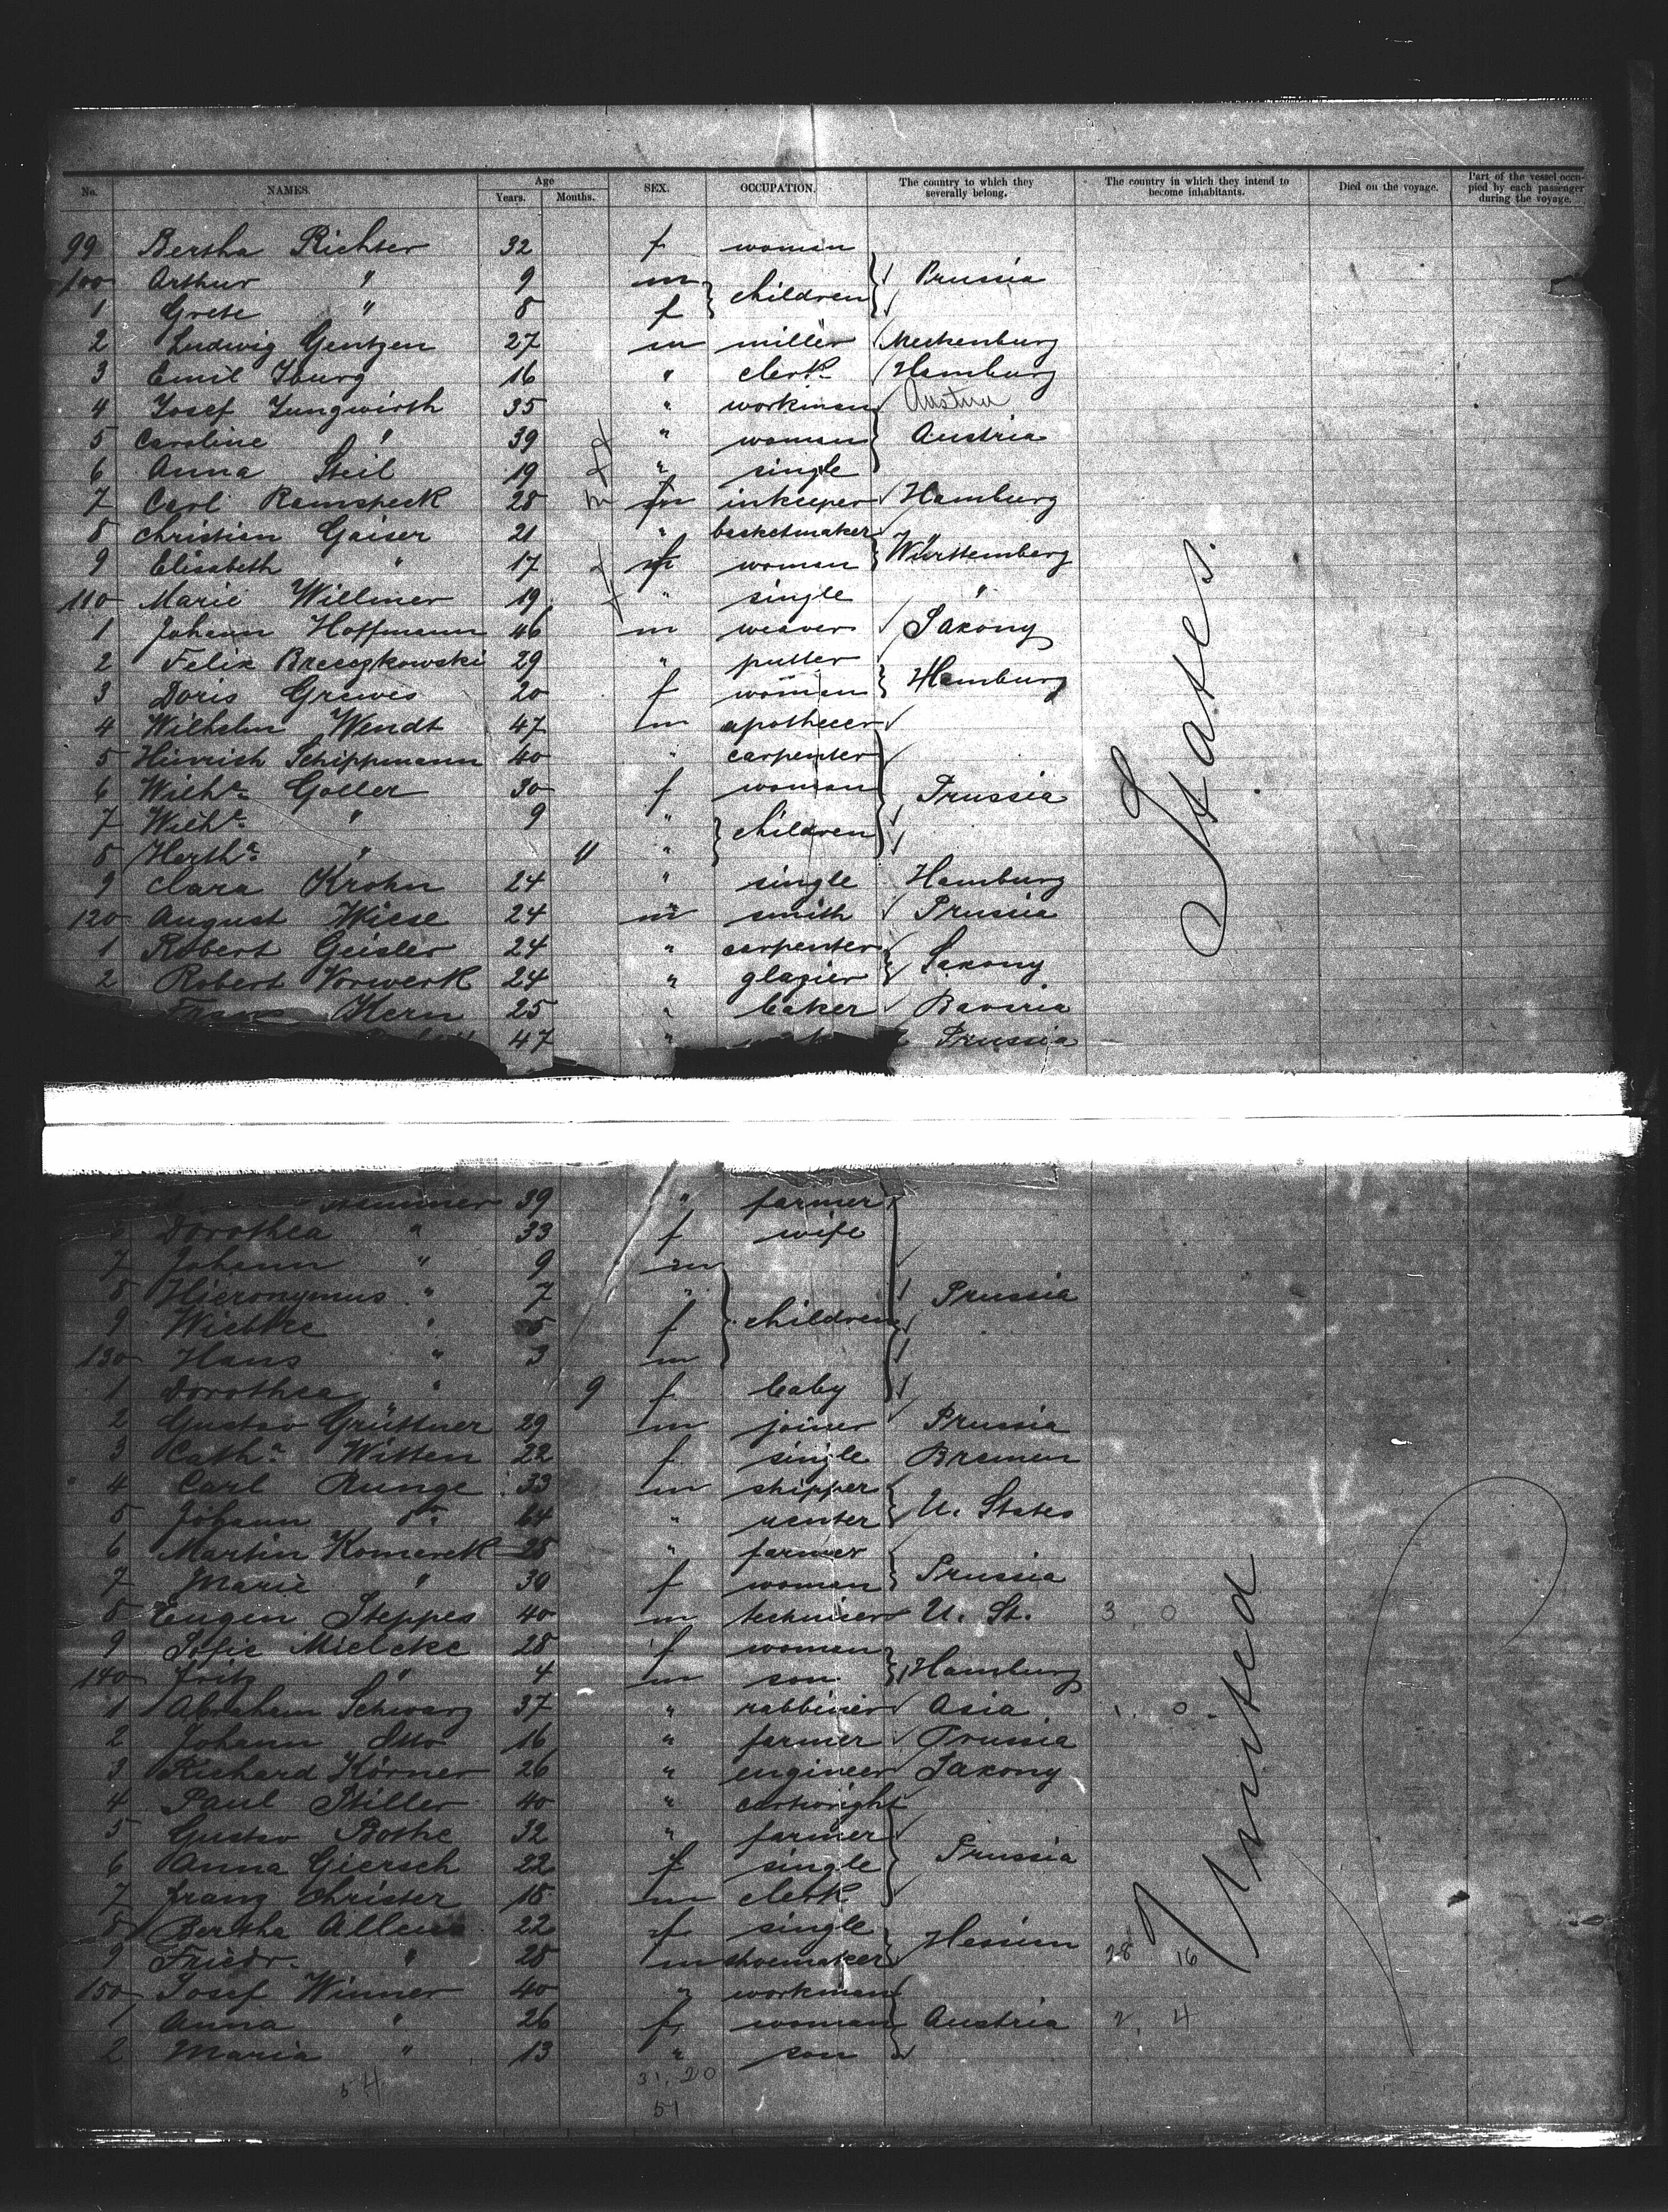 No. NAMES. Age Years. Months. SEX. OCCUPATION. The country to which they severally belong. The country in which they intend to become inhabitants. Died on the voyage. Part of the vessel occupied by each passenger during the voyage.
99 Bertha Richter 32 f woman
100 Arthur " 9 m children Prussia
1 Grete " 8 f
2 Ludwig Gentzen 27 m miller Meckenburg
3 Emil Iburg 16 " clerk Hamburg
4 Josef Jungwirth 35 " workman Austria
5 Caroline " 39 " woman Austria
6 Anna Steil 19 " single
7 Carl Ramspeck 28 m m inkeeper Hamburg
8 Christian Gaiser 21 " basketmaker
9 Elisabeth " 17 f woman Württemberg
110 Marie Willmer 19 " single "
1 Johann Hoffmann 46 m weaver Saxony
2 Felix Breczkowski 29 " putter
3 Doris Grewes 20 f woman Hamburg
4 Wilhelm Wendt 47 m apothecer
5 Hinrich Schippmann 40 " carpenter
6 Wilhe. Goller 30 f woman Prussia
7 Wilhe. " 9 " children
8 Hertha " 11 "
9 Clara Krohn 24 " single Hamburg
120 August Wiese 24 m smith Prussia
1 Robert Geisler 24 " carpenter
2 Robert Vorwerk 24 " glazier Saxony
Kern 25 " baker Bavaria
47 " Prussia
States.
39 " farmer
Dorothea " 33 f wife
7 Johann " 9 m
8 Hieronymus " 7 " Prussia
9 Wiebke " 5 f children
130 Hans " 3 m
1 Dorothea " 9 f baby
2 Gustav Grüttner 29 m joiner Prussia
3 Catha. Witten 22 f single Bremen
4 Carl Runge 33 m shipper
5 Johann do. 64 " renter U. States
6 Martin Komarek 28 " farmer
7 Marie " 30 f woman Prussia
8 Eugen Steppes 40 m techniser U. St. 3 0
9 Sofie Mielcke 28 f woman
140 Fritz " 4 m son Hamburg
1 Abraham Schwarz 37 " rabbiner Asia 1. 0.
2 Johann Otto 16 " farmer Prussia
3 Richard Körner 26 " engineer Saxony
4 Paul Stiller 40 " cartwright
5 Gustav Bothe 32 " farmer
6 Anna Giersch 22 f single Prussia
7 Franz Christer 18 m clerk
8 Bertha 22 f single
9 Friedr. " 28 m shoemaker Hessian 28 16
150 Josef Winner 40 " workman
1 Anna " 26 f woman Austria 2. 4
2 Maria " 13 " son
54 31. 20
51
United